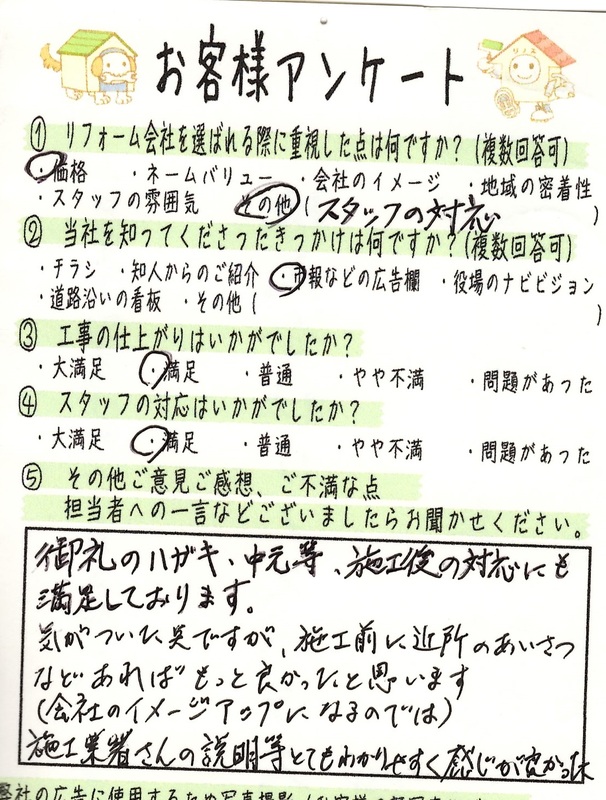 お客様アンケート
① リフォーム会社を選ばれる際に重視した点は何ですか?(複数回答可)
・価格 ・ネームバリュー ・会社のイメージ ・地域の密着性
・スタッフの雰囲気 その他(スタッフの対応)
② 当社を知ってくださったきっかけは何ですか?(複数回答可)
・チラシ ・知人からのご紹介 ・市報などの広告欄 ・役場のナビビジョン
・道路沿いの看板 ・その他( )
③ 工事の仕上がりはいかがでしたか?
・大満足 ・満足 ・普通 ・やや不満 ・問題があった
④ スタッフの対応はいかがでしたか?
・大満足 ・満足 ・普通 ・やや不満 ・問題があった
⑤ その他ご意見ご感想、ご不満な点
担当者への一言などございましたらお聞かせください。
御礼のハガキ、中元等、施工後の対応にも
満足しております。
気がついた点ですが、施工前に近所のあいさつ
などあればもっと良かったと思います
(会社のイメージアップになるのでは)
施工業者さんの説明等とてもわかりやすく感じが良かった
弊社の広告に使用するため写真撮影